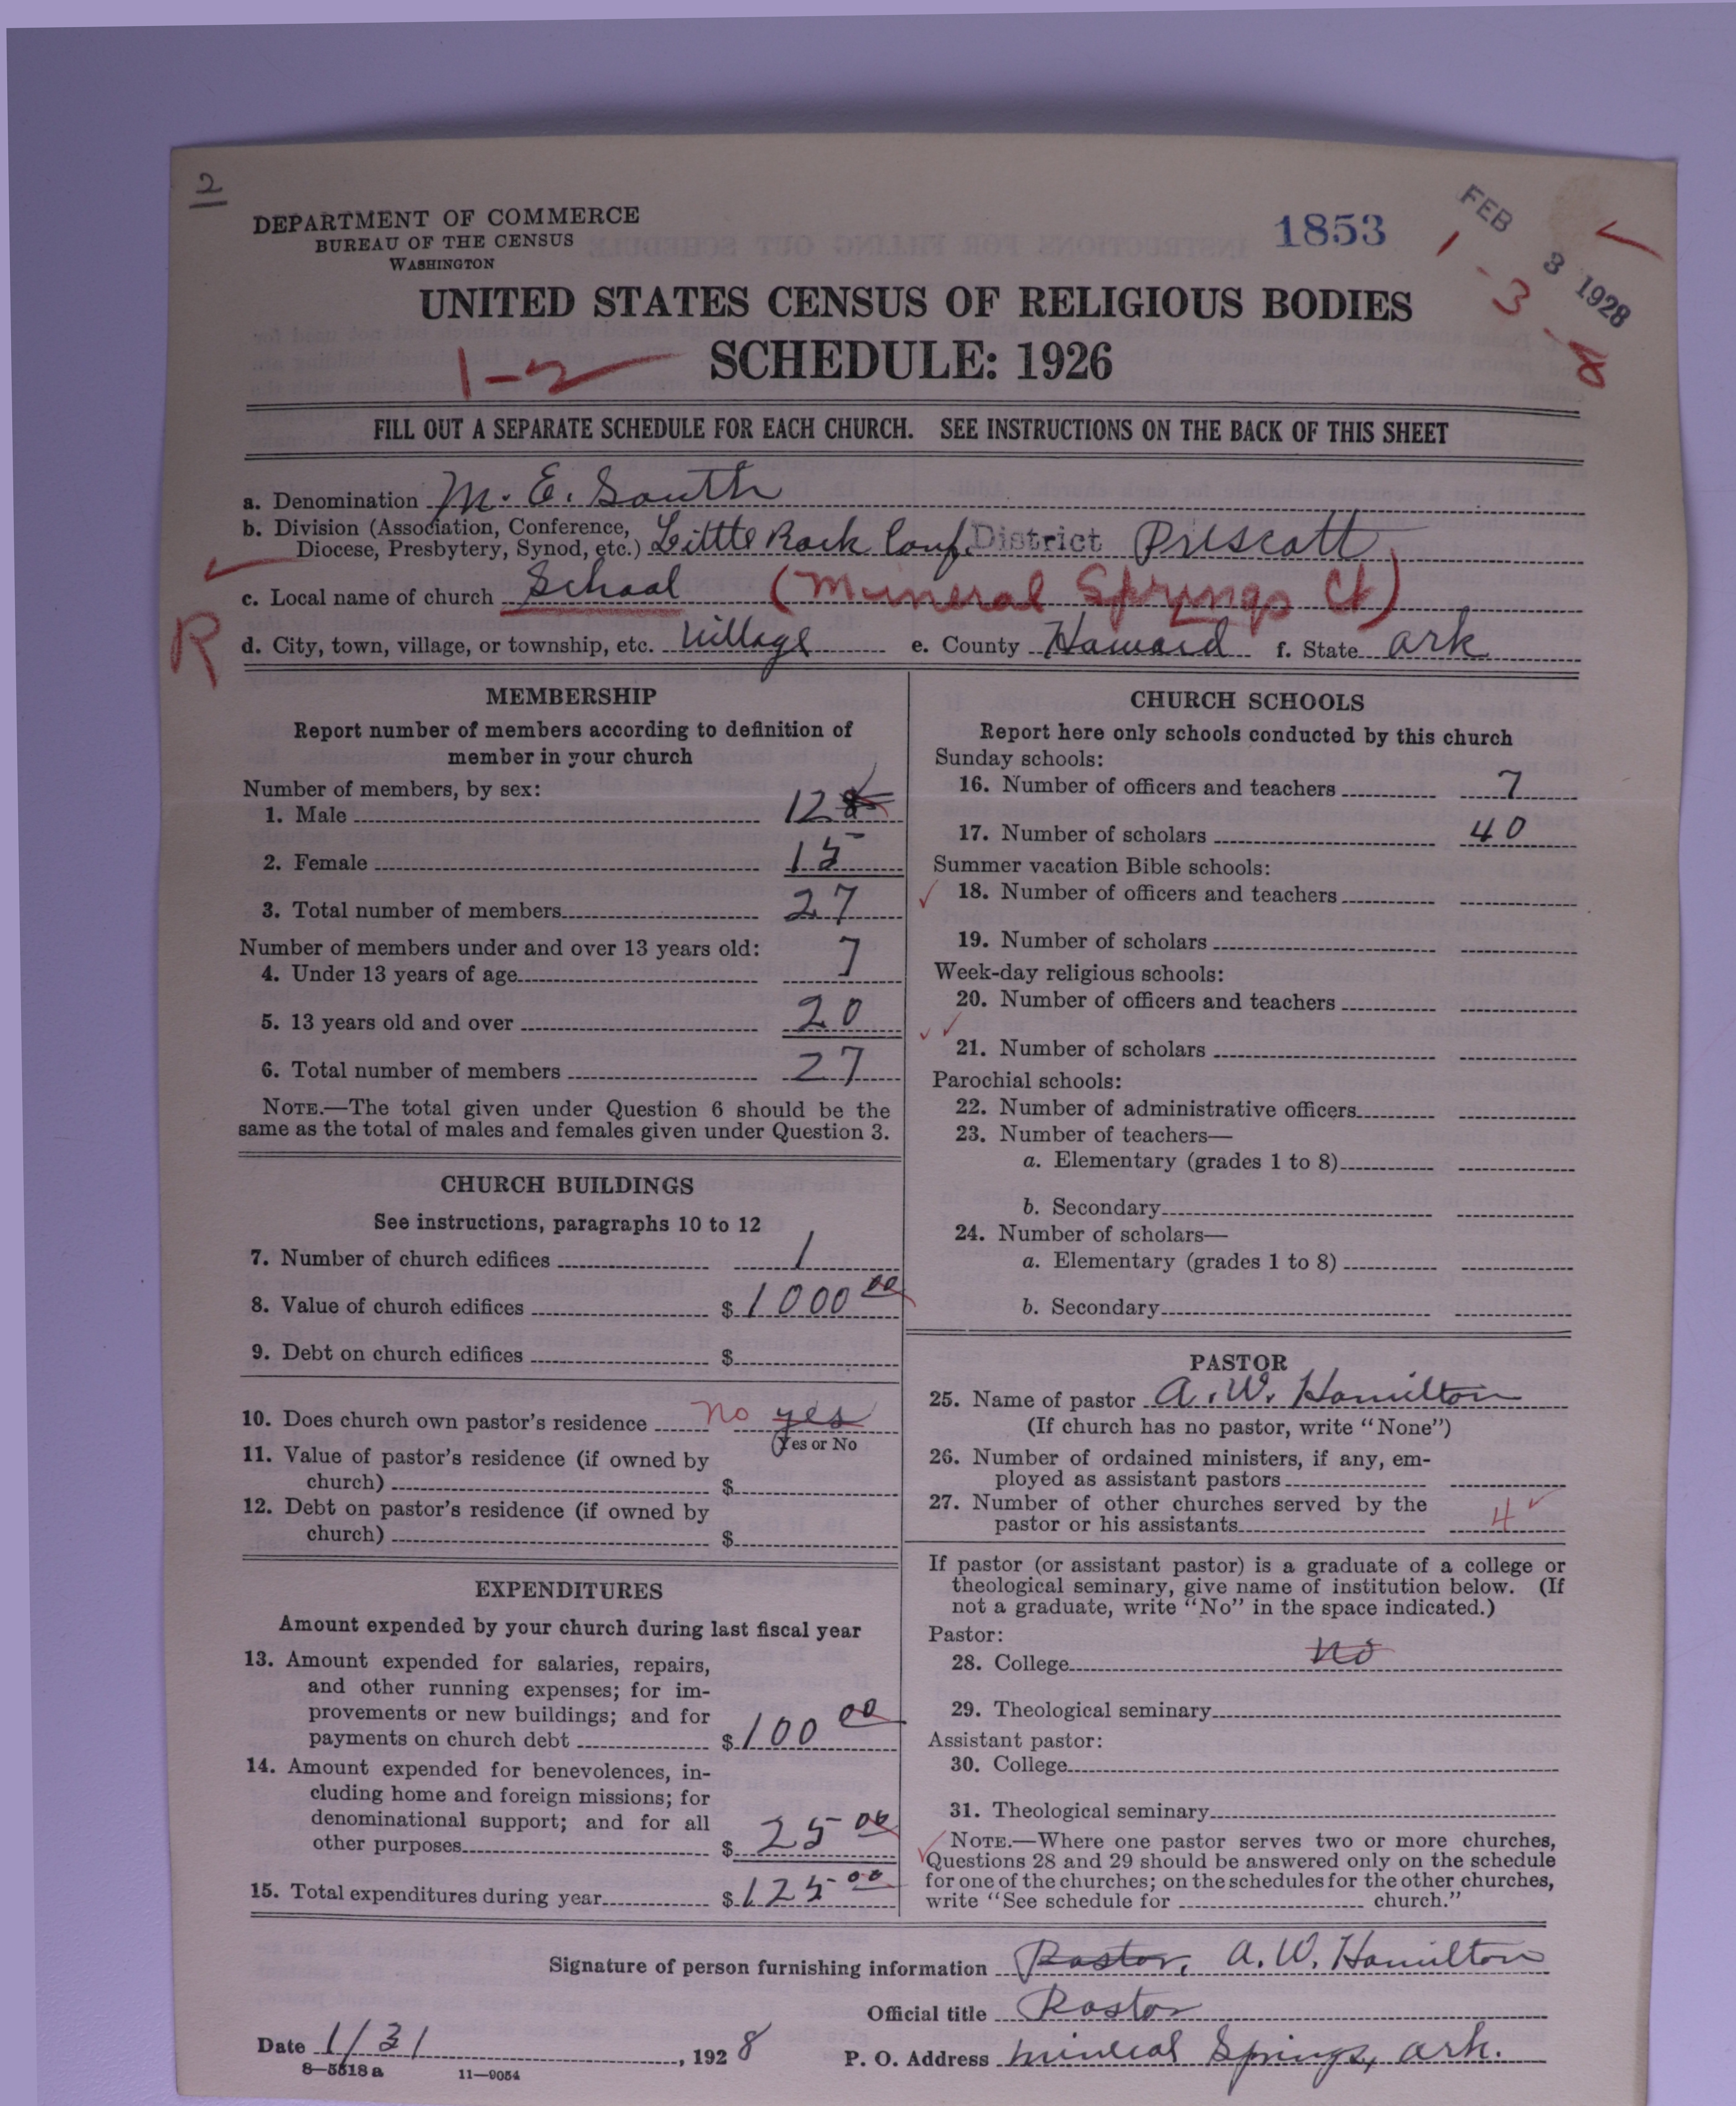 2
DEPARTMENT OF COMMERCE
BUREAU OF THE CENSUS
WASHINGTON
1853
FEB 3 1928
1-3-8
UNITED STATES CENSUS OF RELIGIOUS BODIES
1-2
SCHEDULE: 1926
FILL OUT A SEPARATE SCHEDULE FOR EACH CHURCH. SEE INSTRUCTIONS ON THE BACK OF THIS SHEET
a. Denomination M. E. South
b. Division (Association, Conference,
Diocese, Presbytery, Synod, etc.) Little Rock Conf. District Prescott
c. Local name of church School (Mineral Springs Ct)
R
d. City, town, village, or township, etc. Village e. County Howard f. State Ark
MEMBERSHIP
Report number of members according to definition of
member in your church
Number of members, by sex:
1. Male 12
2. Female 15
3. Total number of members 27
Number of members under and over 13 years old:
4. Under 13 years of age 7
5. 13 years old and over 20
6. Total number of members 27
NOTE.—The total given under Question 6 should be the
same as the total of males and females given under Question 3.
CHURCH BUILDINGS
See instructions, paragraphs 10 to 12
7. Number of church edifices 1
8. Value of church edifices $ 1000 00
9. Debt on church edifices $
10. Does church own pastor's residence no yes
(Yes or No
11. Value of pastor's residence (if owned by
church) $
12. Debt on pastor's residence (if owned by
church) $
EXPENDITURES
Amount expended by your church during last fiscal year
13. Amount expended for salaries, repairs,
and other running expenses; for im-
provements or new buildings; and for
payments on church debt $ 100 00
14. Amount expended for benevolences, in-
cluding home and foreign missions; for
denominational support; and for all
other purposes $ 25 00
15. Total expenditures during year $ 125 00
CHURCH SCHOOLS
Report here only schools conducted by this church
Sunday schools:
16. Number of officers and teachers 7
17. Number of scholars 40
Summer vacation Bible schools:
18. Number of officers and teachers
19. Number of scholars
Week-day religious schools:
20. Number of officers and teachers
21. Number of scholars
Parochial schools:
22. Number of administrative officers
23. Number of teachers—
a. Elementary (grades 1 to 8)
b. Secondary
24. Number of scholars—
a. Elementary (grades 1 to 8)
b. Secondary
PASTOR
25. Name of pastor A. W. Hamilton
(If church has no pastor, write "None")
26. Number of ordained ministers, if any, em-
ployed as assistant pastors
27. Number of other churches served by the
pastor or his assistants 4
If pastor (or assistant pastor) is a graduate of a college or
theological seminary, give name of institution below. (If
not a graduate, write "No" in the space indicated.)
Pastor:
28. College no
29. Theological seminary
Assistant pastor:
30. College
31. Theological seminary
NOTE.—Where one pastor serves two or more churches,
Questions 28 and 29 should be answered only on the schedule
for one of the churches; on the schedules for the other churches,
write "See schedule for church."
Signature of person furnishing information Pastor, A. W. Hamilton
Official title Pastor
Date 1/31, 1928 P. O. Address Mineral Springs, Ark.
8—5518a 11—9054